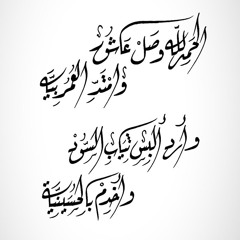 الحمد لله وصل عاشور
وامتد العمر بيه
وأرد ألبس ثياب السود
وأخدم بالحسينية